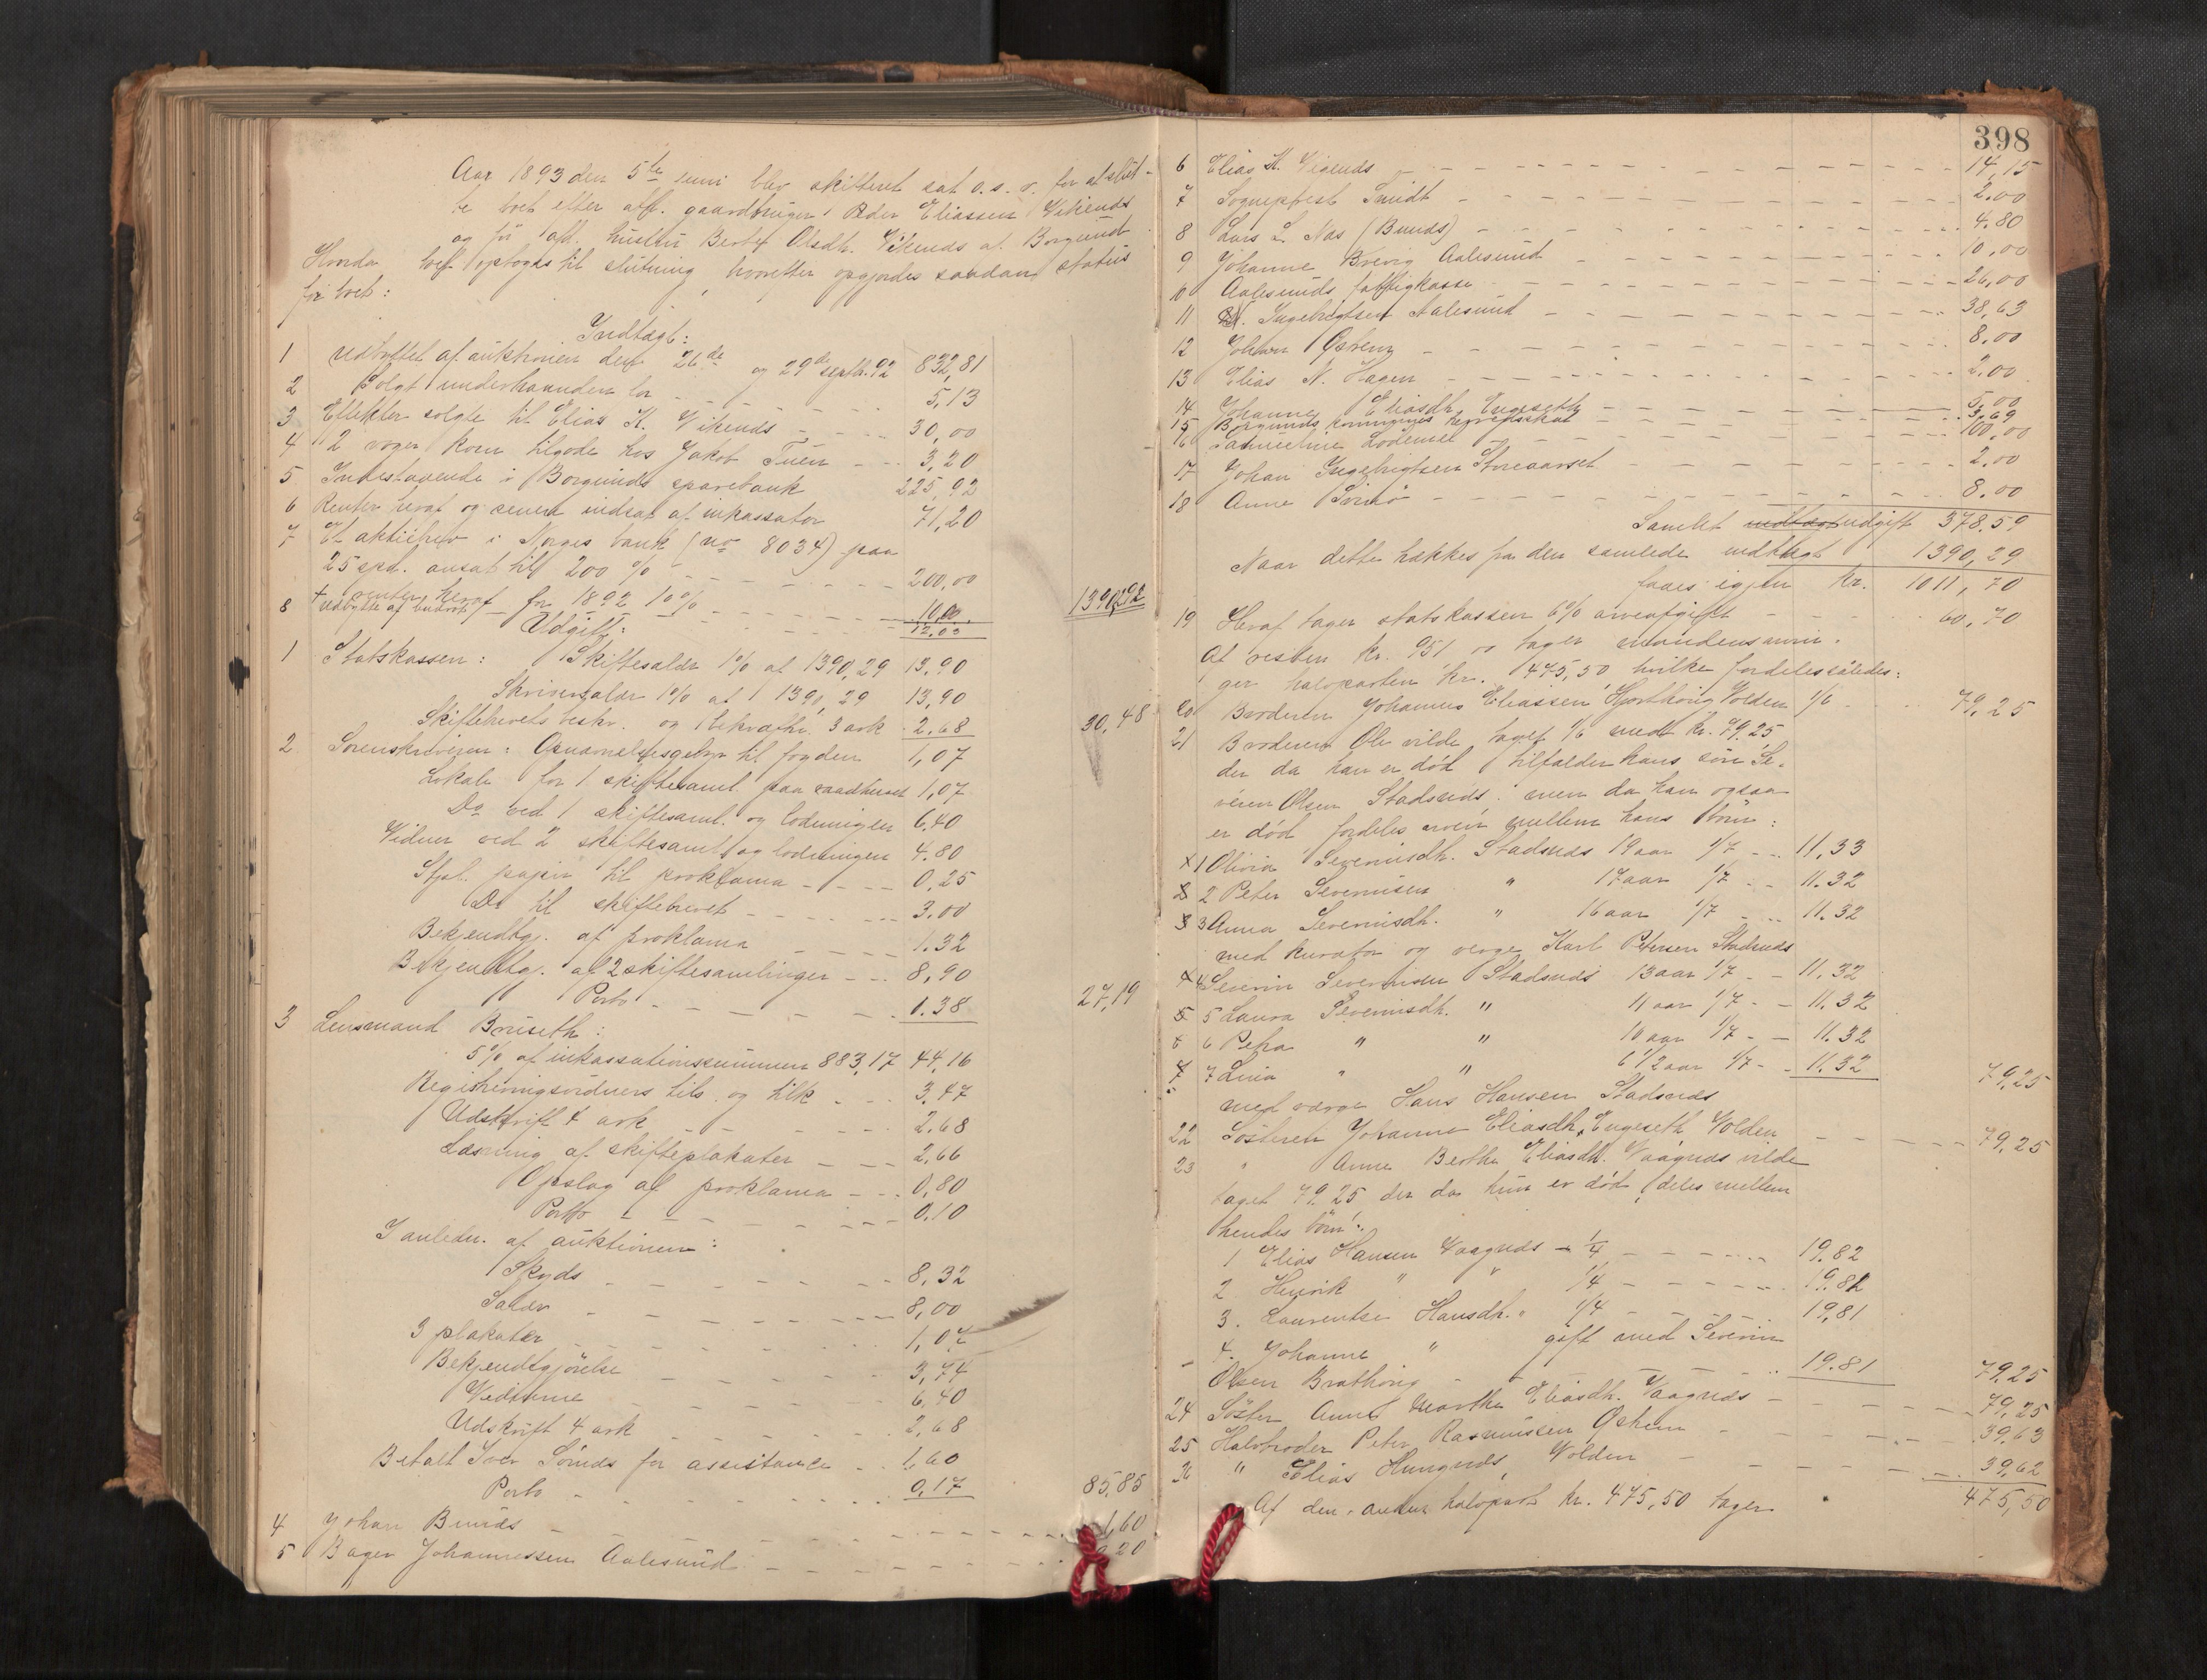 Aar 1893 den 5te juni blev skifteret sat o.s.v. for at slut-
te boet efter afd. gaardbruger Peder Eliassen Vikends
og før afd. hustru Berthe Olsdh. Vikends af Borgund.
Hvorda boet optoges til slutning, hvorefter opgjordes saadan status
for boet:
Indtægt:
1 Udbyttet af auktionen den 26de og 29de septb. 92 832,81
2 Solgt underhaanden for - - - - 5,13
3 Effekter solgte til Elias K. Vikends - - - - 30,00
4 2 voger korn tilgode hos Jakob Tuen - - - 3,20
5 Indestaaende i Borgunds sparebank 225,92
6 Renter heraf og senere indsat af inkassator 71,20
7 Et aktiebrev i Norges bank (no 8034) paa
25 spd. ansat til 200 % - - - - - - 200,00
+ renter heraf for 1892 10% - - - - 10,00
8 Udbytte af - - - - 12,03 1390,29
Udgift:
1 Statskassen: Skiftesalær 1% af 1390,29 13,90
Skriversalær 1% af 1390,29 13,90
Skiftebrevets beskr. og bekræftn. 3 ark - 2,68 30,48
2 Sorenskriveren: Opnævnelsesgebyr til fogden 1,07
Lokale for 1 skiftesaml. paa raadhuset 1,07
Do ved 1 skiftesaml. og lodningen 6,40
Vidner ved 2 skiftesaml. og lodningen 4.80
Stpl. papir til proklama - - - - 0,25
Do til skiftebrevet - - - - - 3,00
Bekjendtgj. af proklama - - - 1.32
Bekjendtgj. af 2 skiftesamlinger - - - 8,90
Porto - - - - - - 0.38 27,19
3 Lensmand Bruseth:
5% af inkassationssummen 883,17 44,16
Registreringsvidners tils. og tilk - - - 3,47
Udskrift 4 ark - - - - - 2.68
Læsning af skifteplakater - - - 2,66
Opslag af proklama - - - 0,80
Porto - - - - - - 0,10
I anledn. af auktionen:
Skyds - - - - - - 8,32
Salær - - - - - - 8,00
3 plakater - - - - - - 1,07
Bekjendtgjørelse - - - - - 3,74
Vidnerne - - - - - 6,40
Udskrift 4 ark - - - - - 2,68
Betalt Iver for assistance - - 1,60
Porto - - - - - - 0,17 85,85
4 Johan Bunds - - - - - - 1,60
5 Bager Johannessen Aalesund - - - - 20
398
6 Elias K. Vigends - - - - - - 14,15
7 Sogneprest Smidt - - - - - - 2.00
8 Lars L. Nas (Bunds) - - - - - - 4.80
9 Johanne Brevig Aalesund - - - - - - 10,00
10 Aalesunds fattigkasse - - - - - - 26,00
11 Ingebrigtsen Aalesund - - - - - - 38,63
12 Johan - - - - - - 8.00
13 Elias N. Hagen - - - - - - 2.00
14 Johanne Eliasdh. Engeseth - - - - - - 5.00
15 Borgunds kommunes - - - - 3,69
16 - - - - - - 100,00
17 Johan Ingebrigtsen - - - - - - 2.00
18 Anne - - - - - - 8.00
Samlet indtægt udgift 378.59
Naar dette trækkes fra den samlede indtægt 1390,29
faaes igjen kr. 1011,70
19 Heraf tager statskassen 6% arveafgift - - - 60,70
Af resten kr. 951 00 tager mandens arvin-
ger halvparten kr. 475,50 hvilke fordeles saaledes:
20 Broderen Johannes Eliassen Hjorthoug Volden 1/6 - - - 79,25
21 Broderen Ole vilde taget 1/6 med kr. 79.25
der da han er død tilfalder hans søn Se-
verin Olsen Stadsnds; men da han ogsaa
er død fordeles arven mellem hans børn:
1 Olivia Severinsdh. Stadsnds 19 aar 1/7 - - - 11,33
2 Peter Severinsen " 17 aar 1/7 - - 11.32
3 Anna Severinsdh. " 16 aar 1/7 - - - 11.32
med kurator og verge Karl Petersen Stadsnds
4 Severin Severinsen Stadsnds 13 aar 1/7 - - 11.32
5 Laura Severinsdh. " 11 aar 1/7 - - 11.32
6 Petra " " 10 aar 1/7 - - 11.32
7 Lina " " 6 1/2 aar 1/7 - - 11.32 79,25
med verge Hans Hansen Stadsnds
22 Søsteren Johanne Eliasdh. Engeseth Volden - - - - - 79,25
23 " Anne Berthe Eliasdh. Vaagnds vilde
taget 79.25 der da hun er død, deles mellem
hendes børn:
1 Elias Hansen Vaagnds - 1/4 - - - - - 19.82
2. Henrik " " 1/4 - - - - - 19.81
3. Laurentse Hansdh. " 1/4 - - - - 19,81
4. Johanne " gift med Severin
Olsen Brathoug - - - - - - 19.81 79,25
24 Søster Anne Marthe Eliasdh. Vaagnds - - - - 79,25
25 Halvbroder Peter Rasmussen - - - - 39,63
26 " Elias Volden - - - - - 39,62
475,50
Af den anden halvpart kr. 475,50 tager